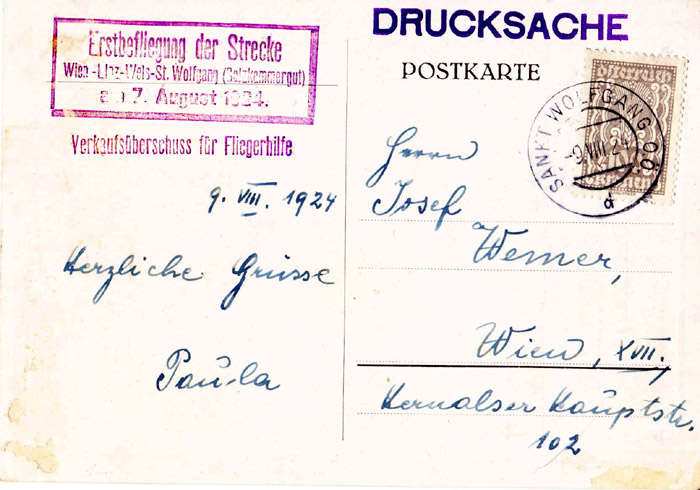 Erstbefliegung der Strecke
Wien-Linz-Wels-St. Wolfgang (Salzkammergut)
am 7. August 1924.
Verkaufsüberschuss für Fliegerhilfe
9. VIII. 1924
Herzliche Grüsse
Paula
DRUCKSACHE
POSTKARTE
österreich
SANKT WOLFGANG, O.Ö.
-9.VIII 24
d
Herrn
Josef
Werner,
Wien, XVII.,
Hernalser Hauptstr.
102